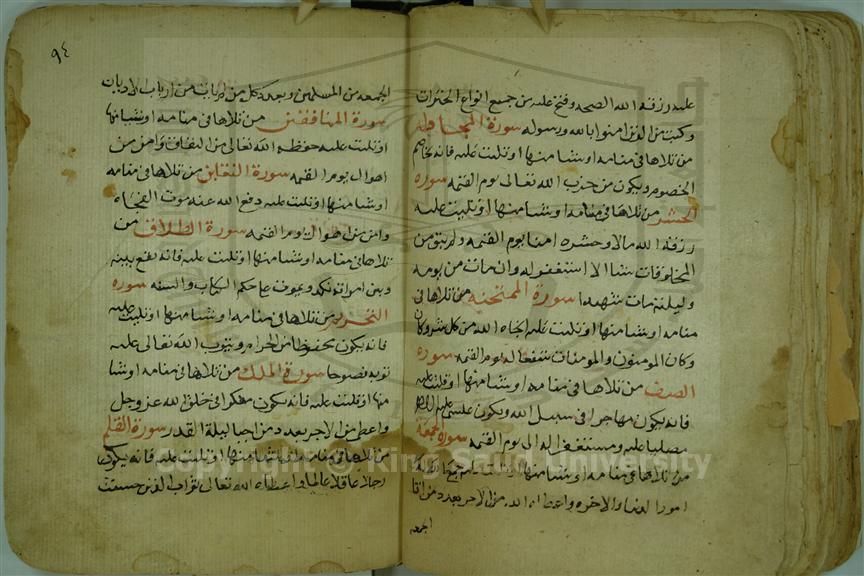 عليه رزقه الله الصحه وفتح عليه من جميع انواع الخيرات
وكتبه من الذين امنوا بالله ورسوله سورة المجادله
من تلاها في منامه او شيا منها او تليت عليه فانه يخاصم
الخصوم ويكون من حزب الله تعالى يوم القيمه سوره
الحشر من تلاها في منامه او شيا منها او تليت عليه
رزقه الله مالا وحشره امنا يوم القيمه ولم يبق من
المخلوقات شيا الا استغفر له وان مات من يومه
وليلته مات شهيدا سورة الممتحنه من تلاها في
منامه او شيا منها او تليت عليه انجاه الله من كل شر وكان
وكان المومنون والمومنات شفعا له يوم القيمه سوره
الصف من تلاها في منامه او شيا منها او تليت عليه
فانه يكون مهاجرا في سبيل الله ويكون عليه
مصليا عليه ومستغفر له الى يوم القيمه سورة الجمعة
من تلاها في منامه او شيا منها او تليت عليه جمع الله له
امور الدنيا والاخره واعطاه الله من الاجر بعدد من اتا
الجمعه
٩٤
الجمعه من المسلمين وبعدد كل من من ارباب الاديان
سورة المنافقين من تلاها في منامه او شيا منها
او تليت عليه حفظه الله تعالى من النفاق وامن من
اهوال يوم القيمه سورة التغابن من تلاها في منامه
او شيا منها او تليت عليه دفع الله عنه موت الفجاه
وامن من اهوال يوم القيمه سورة الطلاق من
تلاها في منامه او شيا منها او تليت عليه فانه يقع بينه
وبين امراته نكد ويموت على حكم الكتاب والسنه سوره
التحريم من تلاها في منامه او شيا منها او تليت عليه
فانه يكون محفوظا من الحرام ويتوب الله تعالى عليه
توبه نصوحا سورة الملك من تلاها في منامه او شيا
منها او تليت عليه فانه يكون مفكرا في خلق الله عز وجل
واعطى من الاجر بعدد من احيا ليلة القدر سورة القلم
من تلاها في منامه او شيا منها او تليت عليه فانه يكون
رجلا عاقلا عالما واعطاه الله تعالى ثواب الذين حسنت
Copyright © King Saud University